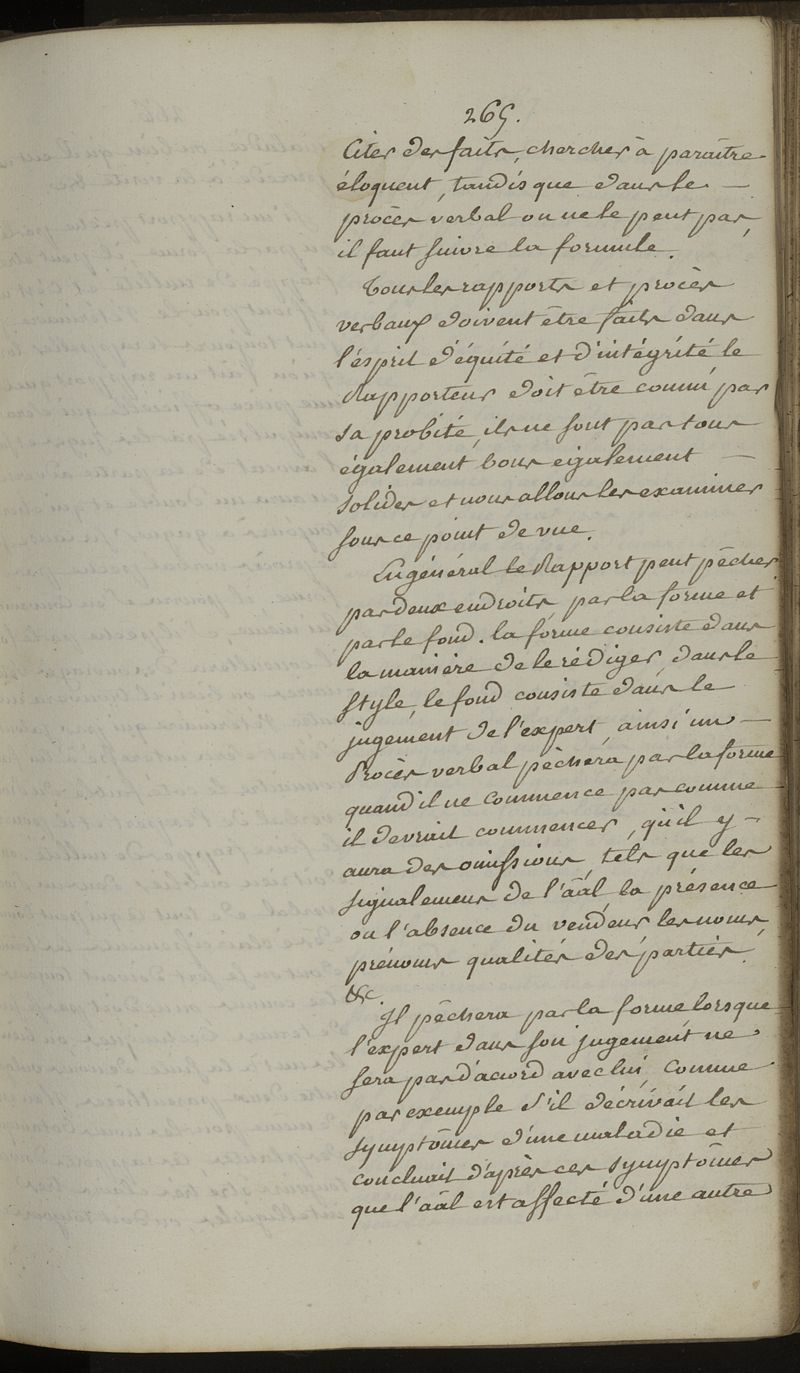 265.
Citer des faits, chercher à paraître
éloquent, tandis que dans le —
procès verbal on ne le peut pas,
il faut suivre la formule.
Tous les rapports et procès
verbaux doivent être faits dans
l'ésprit d'équité et d'intégrité le
Rapporteur doit être connu par
sa probité, ils ne sont pas tous
également bons eigalement —
solides et nous allons les examiner
sous ce point de vue.
En général le Rapport peut pêcher
par deux endroits, par la forme et
par le fond. la forme consiste dans
la manière de le rédiger, dans le
style, le fond consiste dans le
jugement de l'expert, ainsi un —
Procès verbal pêchera par la forme
quand il ne commence pas comme
il devrait commencer, qu'il y —
aura des omissions, tels que les
signalemens de l'aâl, la présence
ou l'absence du vendeur, les noms,
prénoms qualités des parties,
&c.
Il pêchera par la forme lorsque
l'expert dans son jugement ne
sera pas d'acord avec lui, Comme
par exemple s'il décrivait les
symptômes d'une maladie et
concluait d'après ces symptômes
que l'aâl est affecté d'une autre